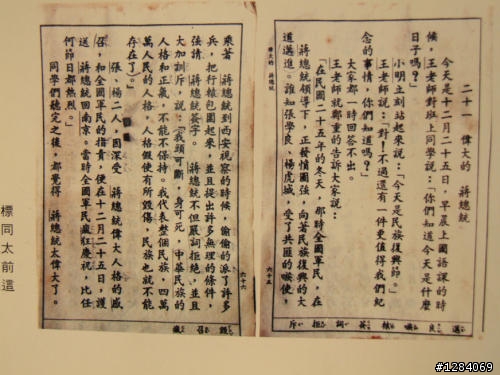 二十一　偉大的　蔣總統
今天是十二月二十五日，早晨上國語課的時
候，王老師對班上同學說：「你們知道今天是什麼
日子嗎？」
小明立刻站起來說：「今天是民族復興節。」
王老師說：「對！不過還有一件更值得我們紀
念的事情，你們知道嗎？」
大家都一時回答不出。
王老師就鄭重的告訴大家說：
「在民國二十五年的冬天，那時全國軍民，在
蔣總統領導下，正發憤圖強，向著民族復興的大
道邁進。誰知張學良、楊虎城，受了共匪的嗾使，
偉大的　蔣總統
六十五
邁 良 嗾 核 簽 詞 拒 斥
六十六
乘著　蔣總統到西安視察的時候，偷偷的派了許多
兵，把行轅包圍起來，並且提出許多無理的條件，
強請　蔣總統簽字。　蔣總統不但嚴詞拒絕，並且
大加訓斥，說：「我頭可斷，身可死，中華民族的
人格和正氣，不能不保持。我代表整個民族，四萬
萬人民的人格，人格假使有所毀傷，民族也就不能
存在了。」
張、楊二人，因深受　蔣總統偉大人格的感
召，和全國軍民的指責，便在十二月二十五日，護
送　蔣總統回南京。當時全國軍民瘋狂慶祝，比任
何節日都熱烈。」
同學們聽完之後，都覺得　蔣總統太偉大了。
毀 召 瘋
標
同
太
前
這
#1284069